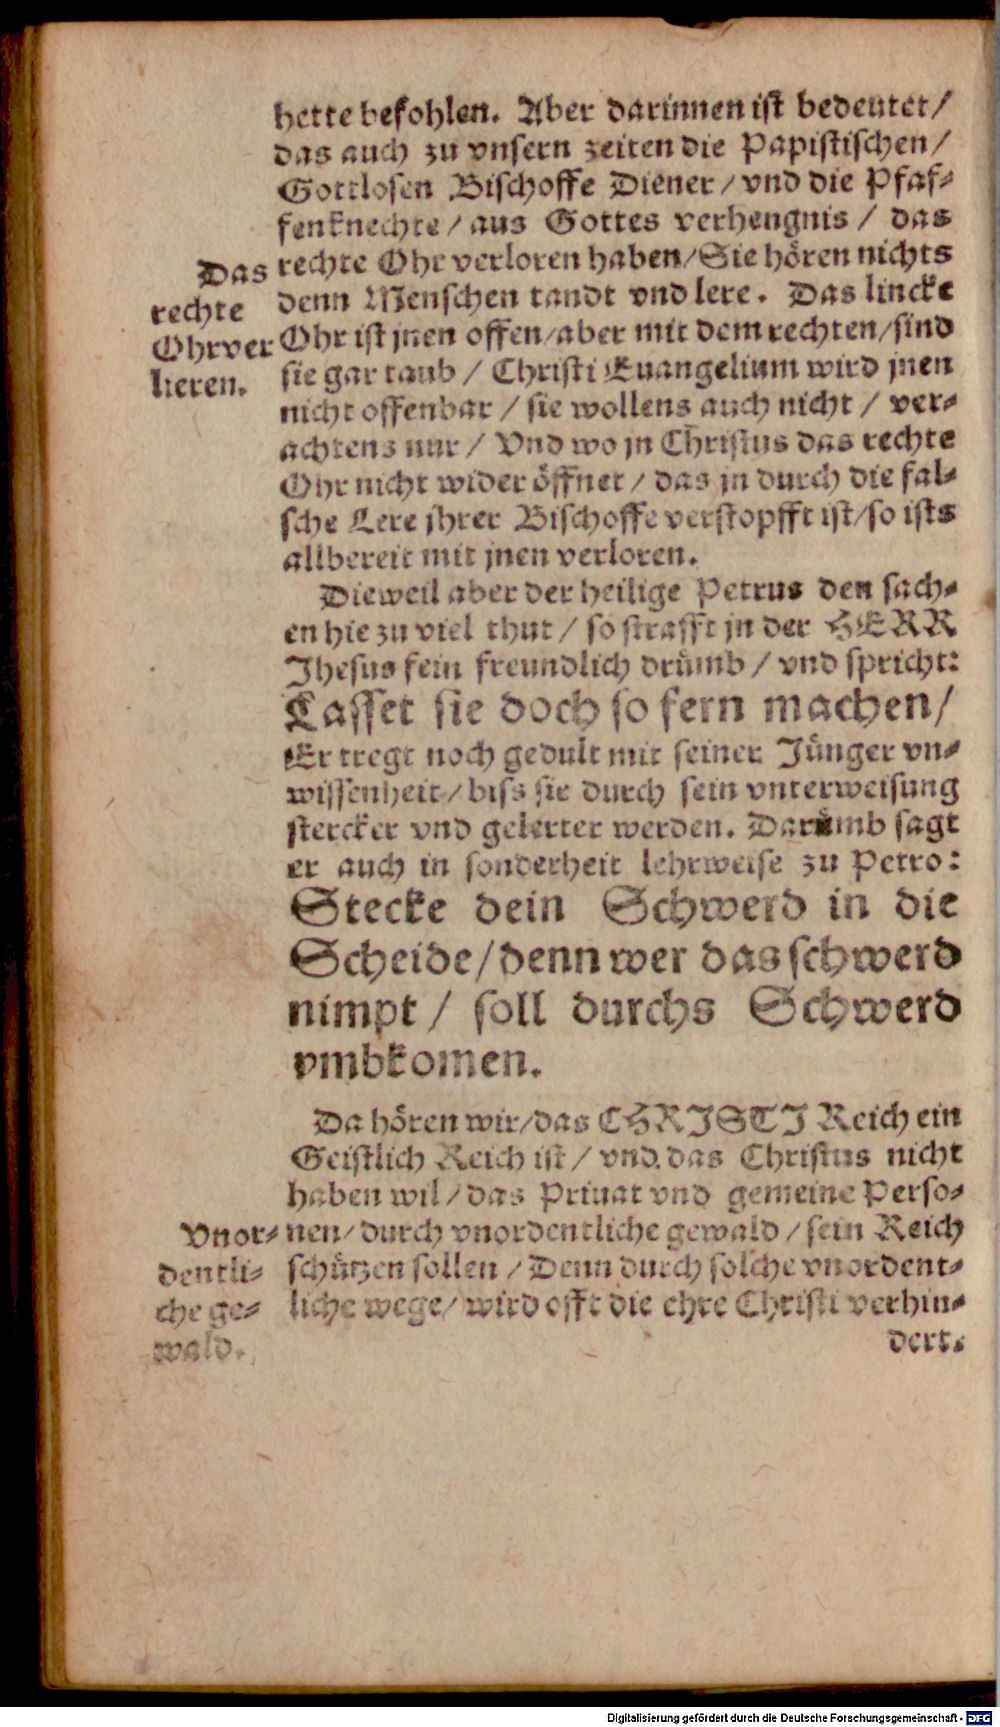 hette befohlen. Aber darinnen ist bedeutet/
das auch zu vnsern zeiten die Papistischen/
Gottlosen Bischoffe Diener/ vnd die Pfaf-
fenknechte/ aus Gottes verhengnis/ das
rechte Ohr verloren haben/Sie hören nichts
denn Menschen tandt vnd lere. Das lincke
Ohr ist jnen offen/aber mit dem rechten/sind
sie gar taub/ Christi Euangelium wird jnen
nicht offenbar/ sie wollens auch nicht/ ver-
achtens nur/ Vnd wo jn Christus das rechte
Ohr nicht wider öffnet/ das jn durch die fal-
sche Lere jhrer Bischoffe verstopfft ist/so ists
allbereit mit jnen verloren.
Das
rechte
Ohr ver
lieren.
Dieweil aber der heilige Petrus den sach-
en hie zu viel thut/ so strafft jn der HERR
Jhesus fein freundlich drümb/ vnd spricht:
Lasset sie doch so fern machen/
Er tregt noch gedult mit seiner Jünger vn-
wissenheit/ biss sie durch sein vnterweisung
stercker vnd gelerter werden. Darümb sagt
er auch in sonderheit lehrweise zu Petro:
Stecke dein Schwerd in die
Scheide/denn wer das schwerd
nimpt/ soll durchs Schwerd
vmbkomen.
Da hören wir/das CHRISTI Reich ein
Geistlich Reich ist/ vnd das Christus nicht
haben wil/ das Priuat vnd gemeine Perso-
nen/ durch vnordentliche gewald/ sein Reich
schützen sollen/ Denn durch solche vnordent-
liche wege/ wird offt die ehre Christi verhin-
dert.
Vnor-
dentli-
che ge-
wald.
Digitalisierung gefördert durch die Deutsche Forschungsgemeinschaft - DFG